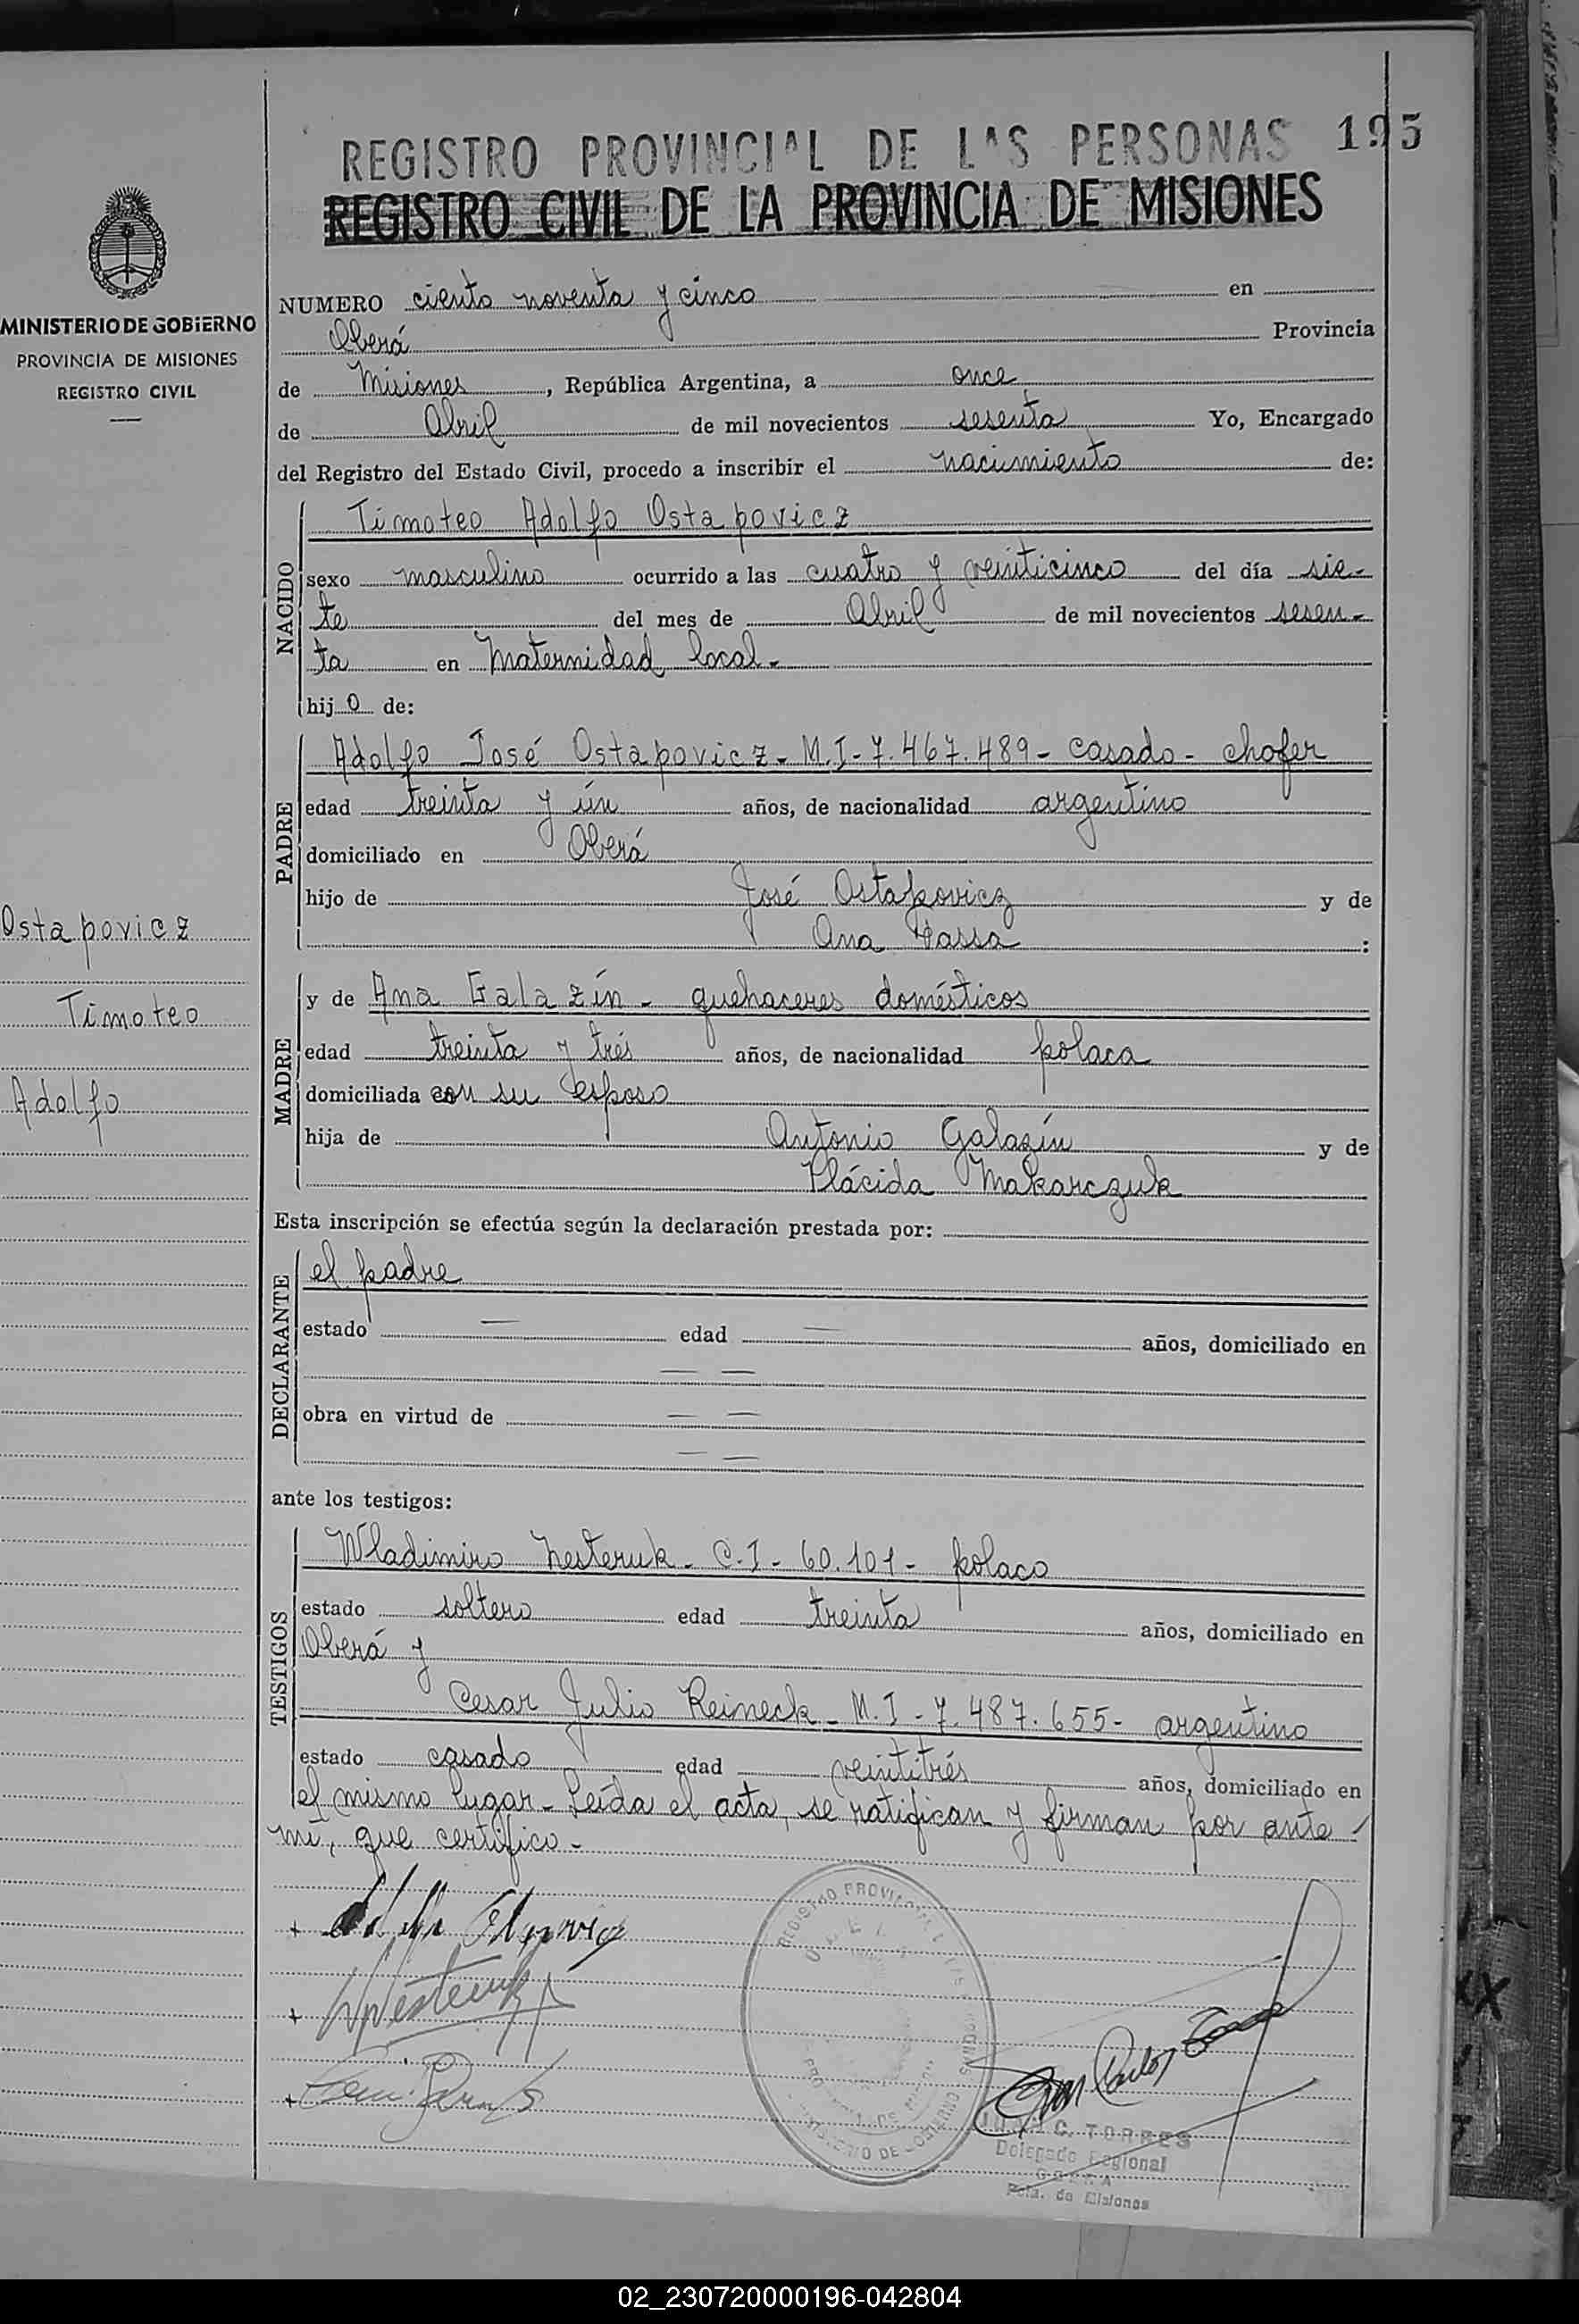 REGISTRO PROVINCIAL DE LAS PERSONAS 195
REGISTRO CIVIL DE LA PROVINCIA DE MISIONES
MINISTERIO DE GOBIERNO
PROVINCIA DE MISIONES
REGISTRO CIVIL
Ostapovicz
Timoteo
Adolfo
NUMERO ciento noventa y cinco en
Oberá Provincia
de Misiones, República Argentina, a once
de Abril de mil novecientos sesenta Yo, Encargado
del Registro del Estado Civil, procedo a inscribir el nacimiento de:
NACIDO
Timoteo Adolfo Ostapovicz
sexo masculino ocurrido a las cuatro y veinticinco del día sie-
te del mes de Abril de mil novecientos sesen-
ta en Maternidad local.-
hijo de:
PADRE
Adolfo José Ostapovicz - M.I - 7.467.489 - casado - chofer
edad treinta y ún años, de nacionalidad argentino
domiciliado en Oberá
hijo de José Ostapovicz y de
Ana :
MADRE
y de Ana Galazín - quehaceres domésticos
edad treinta y trés años, de nacionalidad polaca
domiciliada con su esposo
hija de Antonio Galazín y de
Plácida Makarczuk
Esta inscripción se efectúa según la declaración prestada por:
DECLARANTE
el padre
estado — edad — años, domiciliado en
— —
obra en virtud de — —
— —
ante los testigos:
TESTIGOS
Wladimiro Nesteruk - C.I - 60.101 - polaco
estado soltero edad treinta años, domiciliado en
Oberá y
Cesar Julio Reineck - M.I - 7.487.655 - argentino
estado casado edad veintitrés años, domiciliado en
el mismo lugar - Leída el acta, se ratifican y firman por ante
mí, que certifico.-
JUAN C. TORRES
Delegado Regional
OBERA
Pcia. de Misiones
02_230720000196-042804